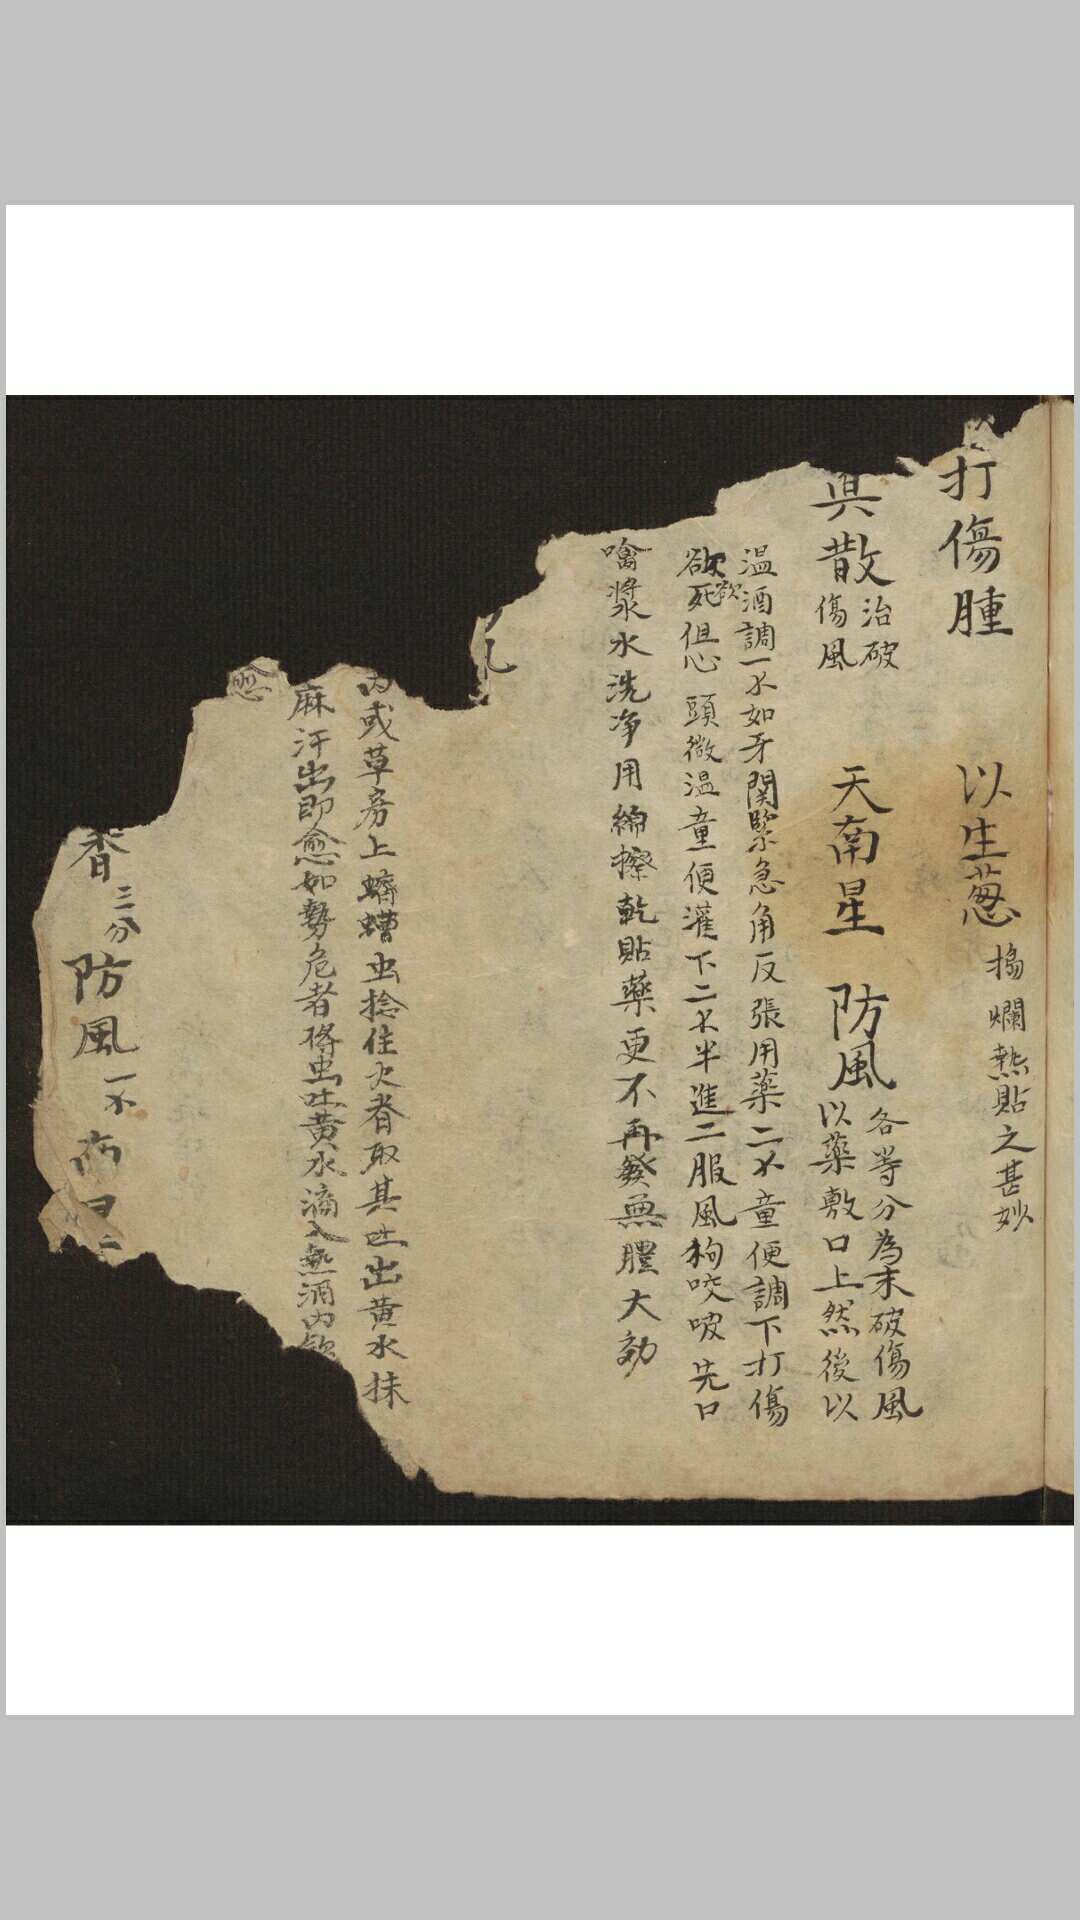 打傷腫 以生葱 搗爛熱貼之甚妙
具散 治破傷風 天南星 防風 各等分為末破傷風
以藥敷口上然後以
温酒調一不如牙関緊急角反張用藥二不童便調下打傷
欲死但心頭微温童便灌下二不半進二服風狗咬破先口
噙漿水洗净用綿擦乾貼藥更不再發無膿大効
内或草房上蠐螬虫捻住火脊取其吐出黄水抹
麻汗出即愈如勢危者將虫吐黄水滴入熱酒内飲
愈
香三分防風一不南星二